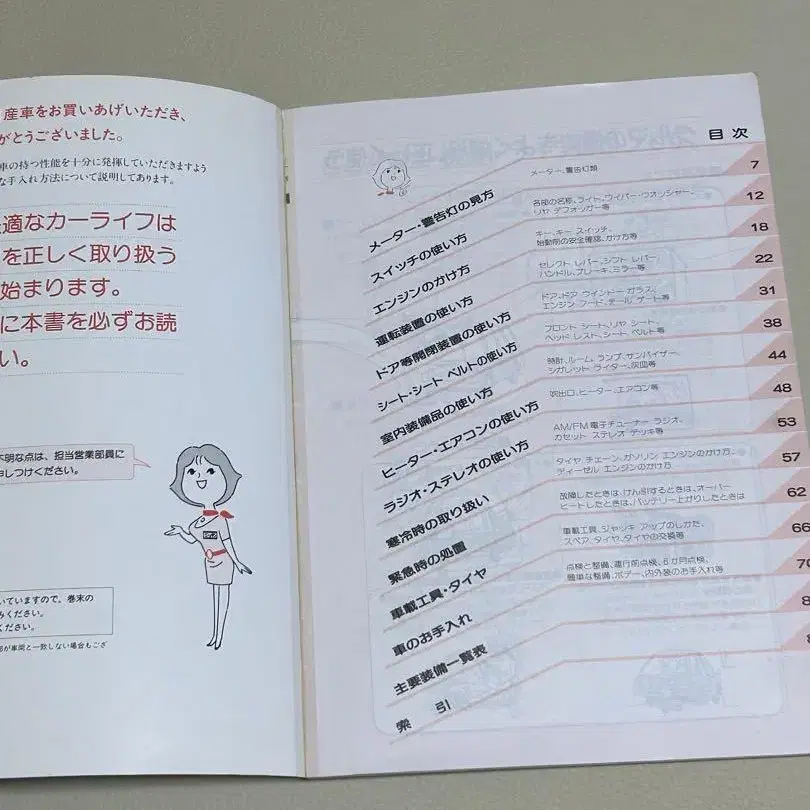 産車をお買いあげいただき、
がとうございました。
車の持つ性能を十分に発揮していただきますよう
な手入れ方法について説明してあります。
適なカーライフは
を正しく取り扱う
始まります。
に本書を必ずお読
い。
不明な点は、担当営業部員に
しつけください。
いていますので、巻末の
みください。
ください。
部が車両と一致しない場合もござ
目次
メーター・警告灯の見方
メーター、警告灯類
7
スイッチの使い方
各部の名称、ライト、ワイパー・ウオッシャー、
リヤ デフォッガー等
12
エンジンのかけ方
キー、キー スイッチ、
始動前の安全確認、かけ方等
18
運転装置の使い方
セレクト レバー、シフト レバー、
ハンドル、ブレーキ、ミラー等
22
ドア等開閉装置の使い方
ドア、ドア ウインドー ガラス、
エンジン フード、テール ゲート等
31
シート・シート ベルトの使い方
フロント シート、リヤ シート、
ヘッド レスト、シート ベルト等
38
室内装備品の使い方
時計、ルーム ランプ、サンバイザー、
シガレット ライター、灰皿等
44
ヒーター・エアコンの使い方
吹出口、ヒーター、エアコン等
48
ラジオ・ステレオの使い方
AM/FM電子チューナー ラジオ、
カセット ステレオ デッキ等
53
寒冷時の取り扱い
タイヤ チェーン、ガソリン エンジンのかけ方、
ディーゼル エンジンのかけ方
57
緊急時の処置
故障したときは、けん引するときは、オーバー
ヒートしたときは、バッテリー上がりしたときは
62
車載工具・タイヤ
車載工具、ジャッキ アップのしかた、
スペア タイヤ、タイヤの交換等
66
車のお手入れ
点検と整備、運行前点検、6カ月点検、
簡単な整備、ボデー、内外装のお手入れ等
70
主要装備一覧表
8
索引